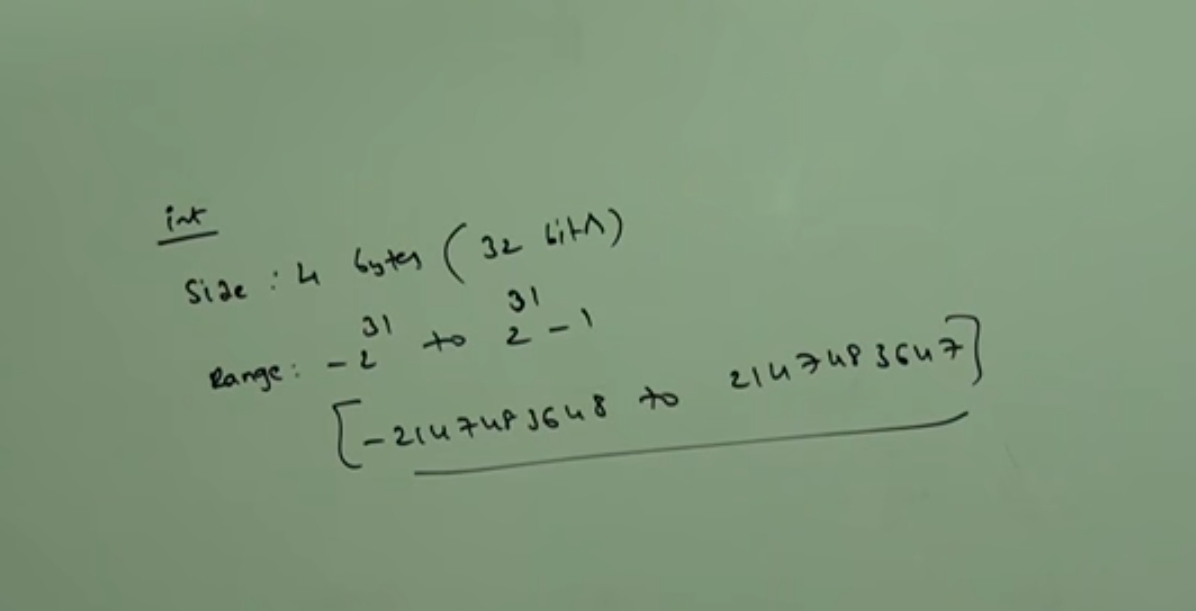 int
Size : 4 bytes (32 bits)
Range: -2³¹ to 2³¹-1
[-2147483648 to 2147483647]